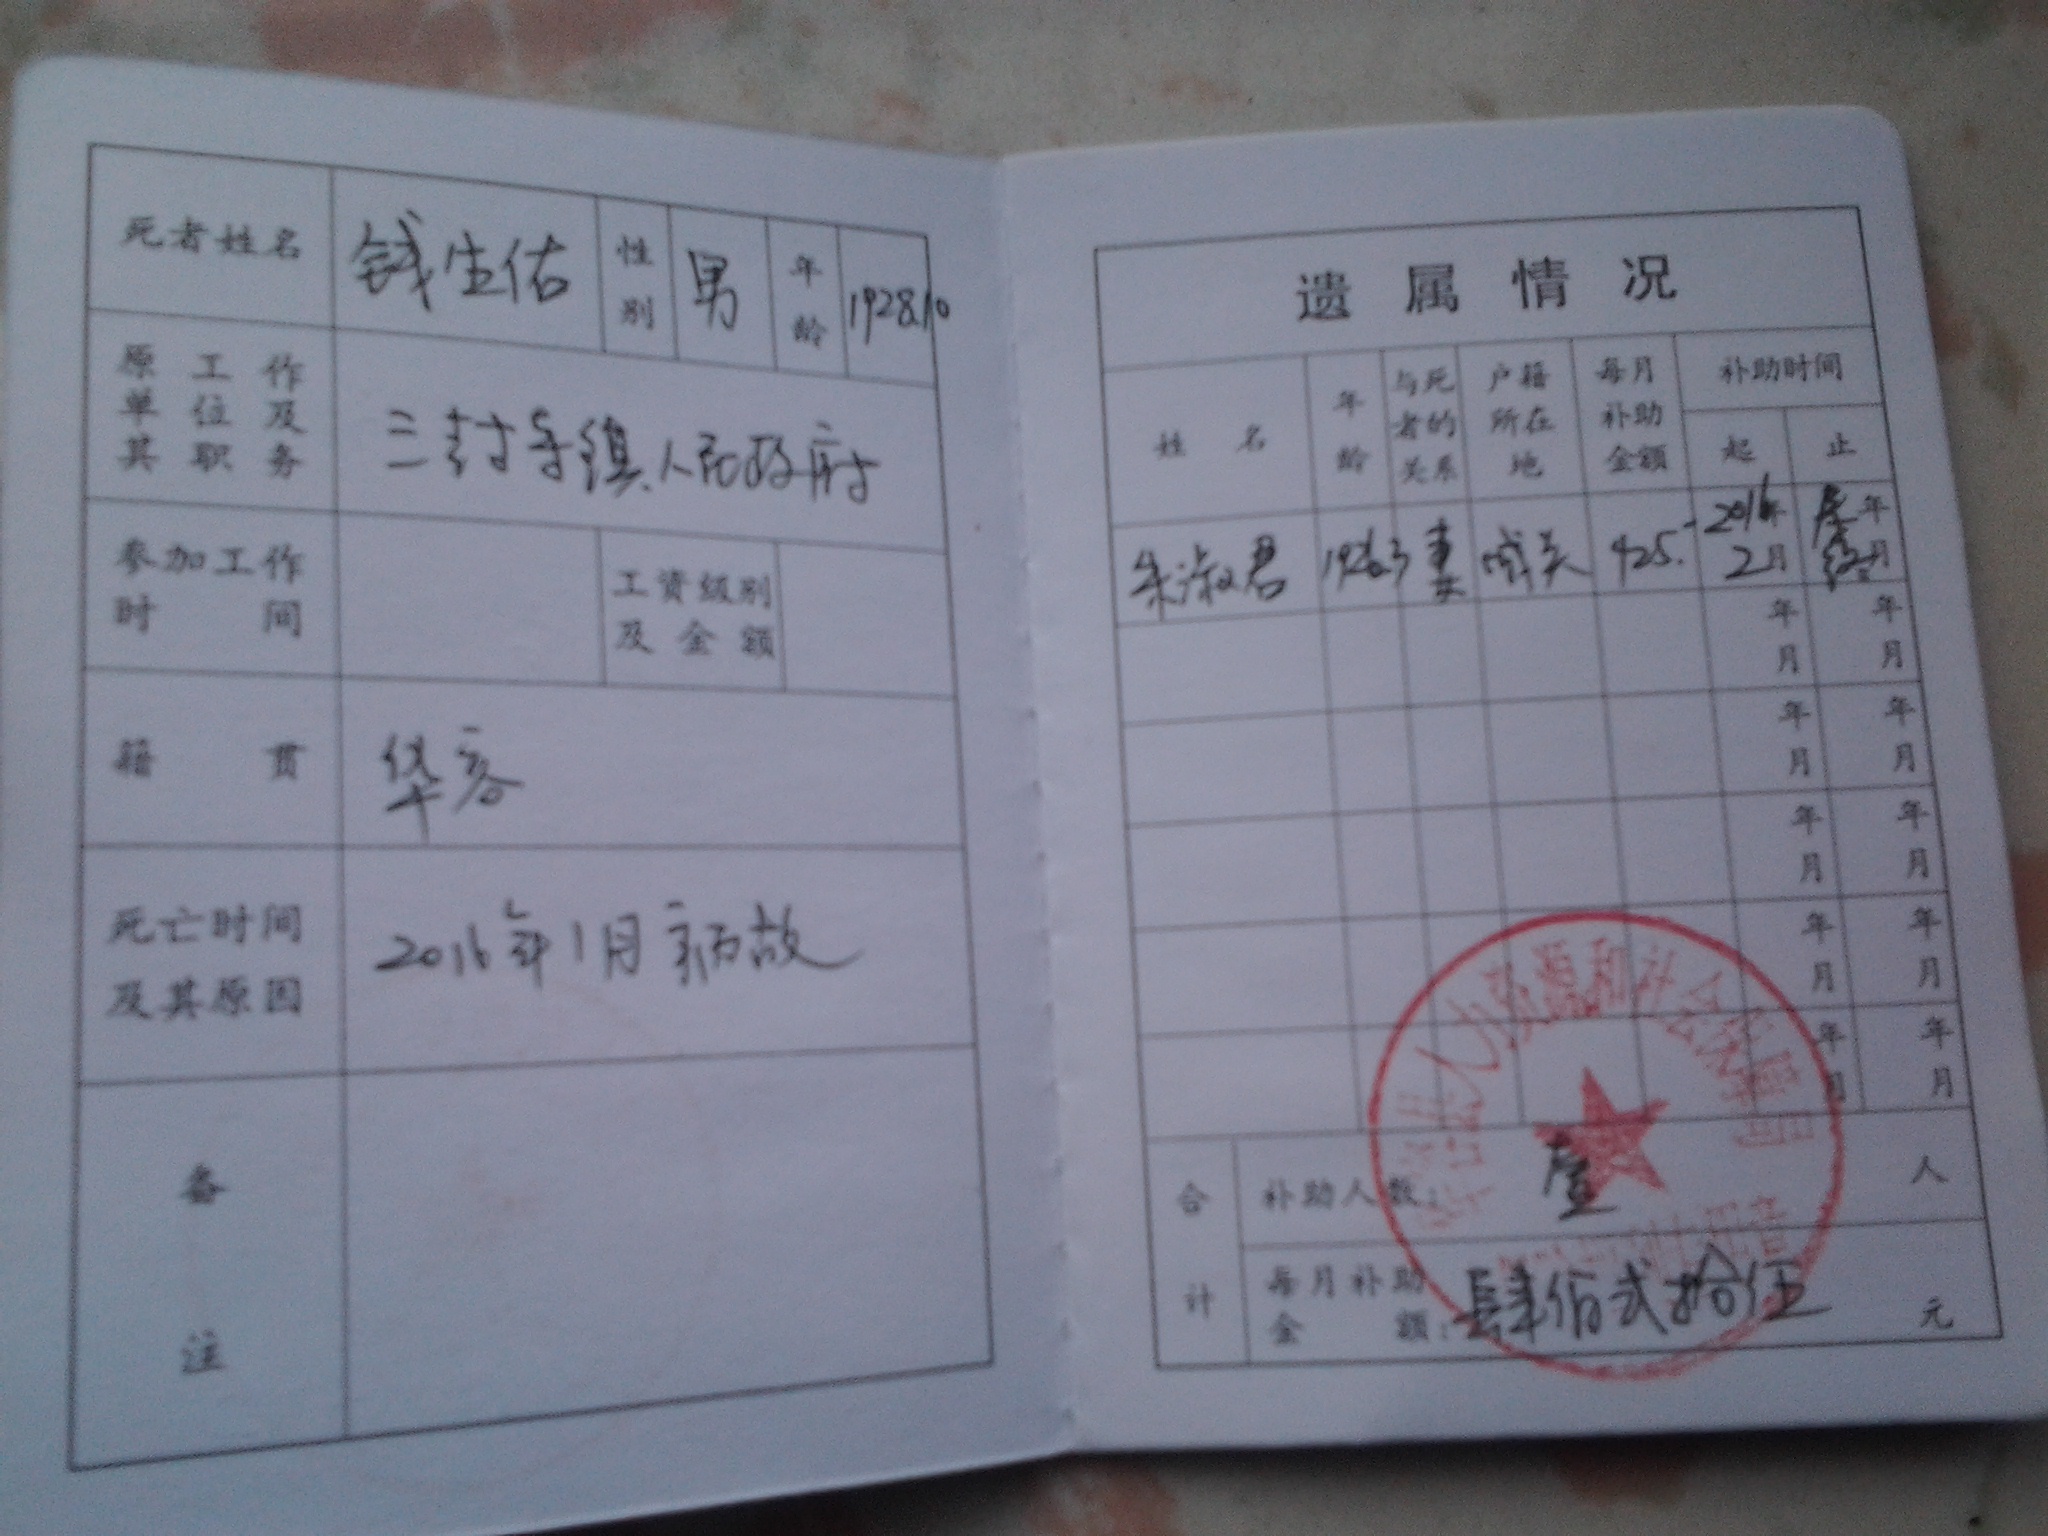 死者姓名 钱生佑 性别 男 年龄 1928.10
原工作单位及其职务 三封寺镇人民政府
参加工作时间 工资级别及金额
籍贯 华容
死亡时间及其原因 2016年1月病故
备注
遗属情况
姓名 年龄 与死者的关系 户籍所在地 每月补助金额 补助时间
起 止
朱淑君 妻 425.- 2016年2月 年 月
年 月 年 月
年 月 年 月
年 月 年 月
年 月 年 月
年 月 年 月
人力资源和社会保障局
合计 补助人数: 壹 人
每月补助金额: 肆佰贰拾伍 元